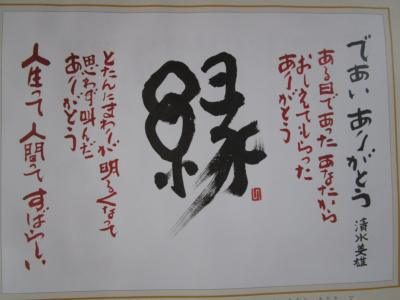 であい ありがとう
清水英雄
ある日であった あなたから
おしえてもらった
ありがとう
縁
とたんにまわりが 明るくなって
思わず叫んだ
ありがとう
人生って 人間って すばらしい